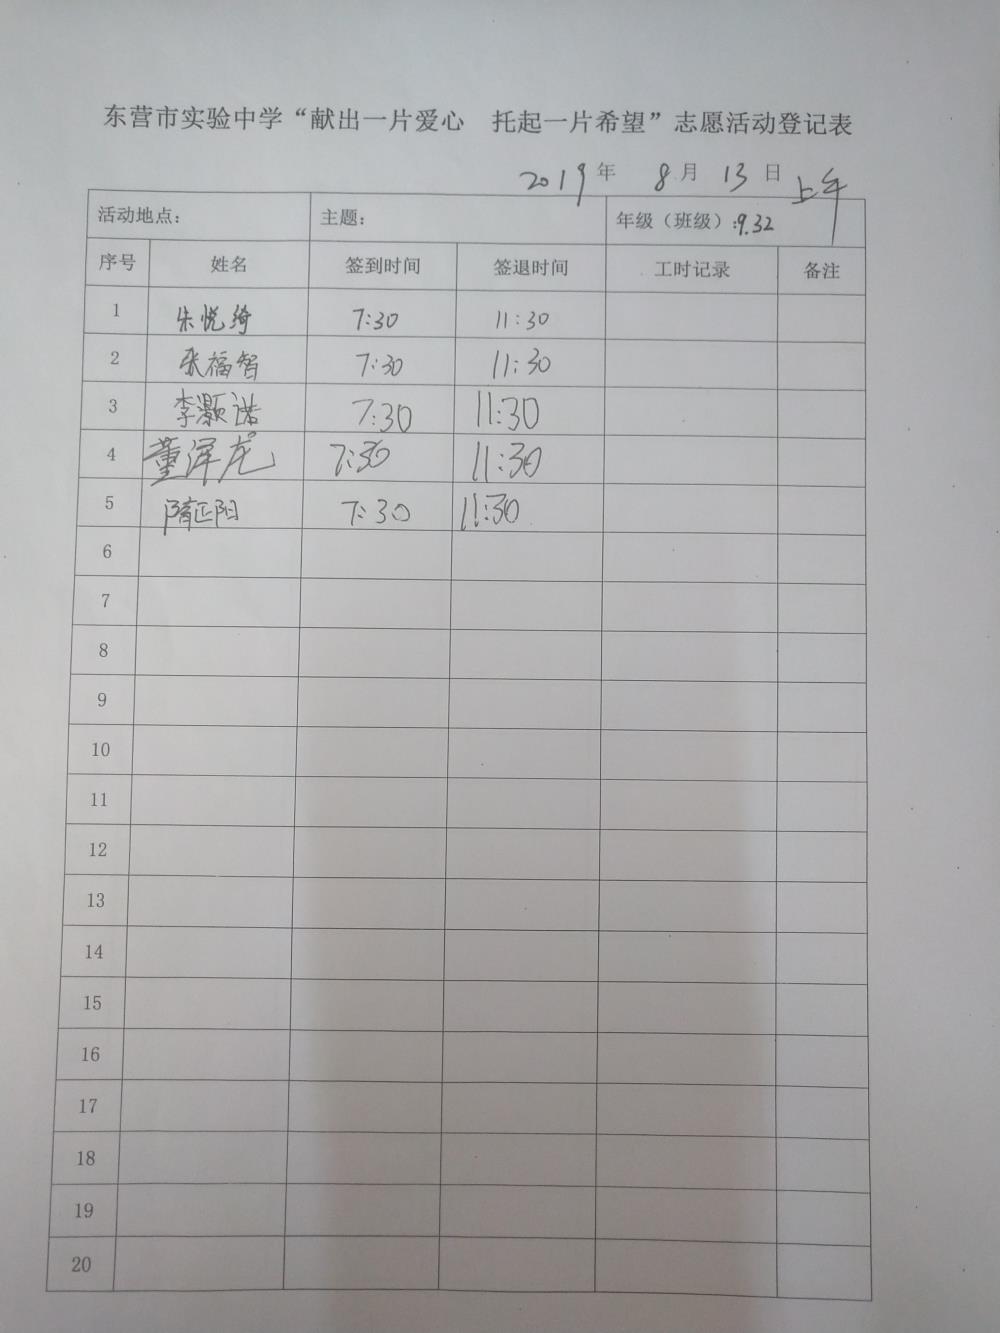 东营市实验中学“献出一片爱心 托起一片希望”志愿活动登记表
2019年 8月 13日 上午
活动地点: 主题: 年级(班级):9.32
序号 姓名 签到时间 签退时间 工时记录 备注
1 朱悦绮 7:30 11:30
2 张福智 7:30 11:30
3 李灏诺 7:30 11:30
4 董泽龙 7:30 11:30
5 隋正阳 7:30 11:30
6
7
8
9
10
11
12
13
14
15
16
17
18
19
20